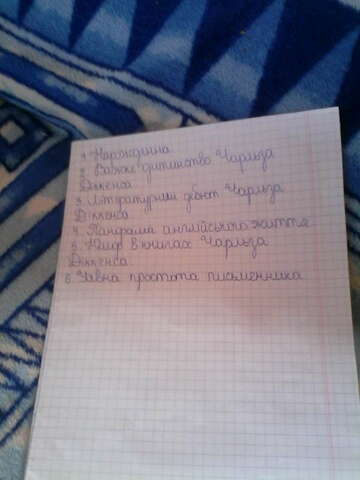 1. Народження
2. Важке дитинство Чарльза
Діккенса
3. Літературний дебют Чарльза
Діккенса
4. Панорама англійського життя
5. Гумор в книгах Чарльза
Діккенса
6. Уявна простота письменника